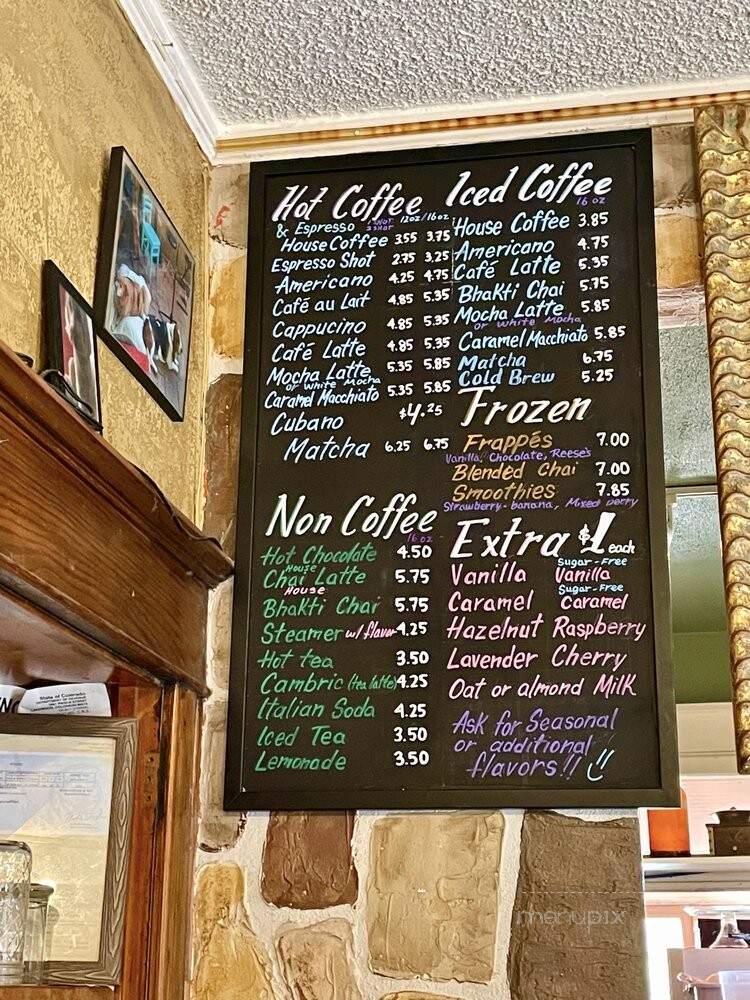 Hot Coffee
& Espresso 12oz/16oz
House Coffee 3.55 3.75
Espresso Shot 2.75 3.25
Americano 4.25 4.75
Café au Lait 4.85 5.35
Cappucino 4.85 5.35
Café Latte 4.85 5.35
Mocha Latte 5.35 5.85
or White Mocha
Caramel Macchiato 5.35 5.85
Cubano $4.25
Matcha 6.25 6.75
Non Coffee
16 oz
Hot Chocolate 4.50
House
Chai Latte 5.75
House
Bhakti Chai 5.75
Steamer w/ flavor 4.25
Hot tea 3.50
Cambric (tea latte) 4.25
Italian Soda 4.25
Iced Tea 3.50
Lemonade 3.50
Iced Coffee
16 oz
House Coffee 3.85
Americano 4.75
Café Latte 5.35
Bhakti Chai 5.75
Mocha Latte 5.85
or White Mocha
Caramel Macchiato 5.85
Matcha 6.75
Cold Brew 5.25
Frozen
Frappés 7.00
Vanilla, Chocolate, Reese's
Blended Chai 7.00
Smoothies 7.85
Strawberry-banana, Mixed berry
Extra $1 each
Sugar-Free
Vanilla Vanilla
Sugar-Free
Caramel Caramel
Hazelnut Raspberry
Lavender Cherry
Oat or almond Milk
Ask for Seasonal
or additional
flavors!!
State of Colorado
menupix